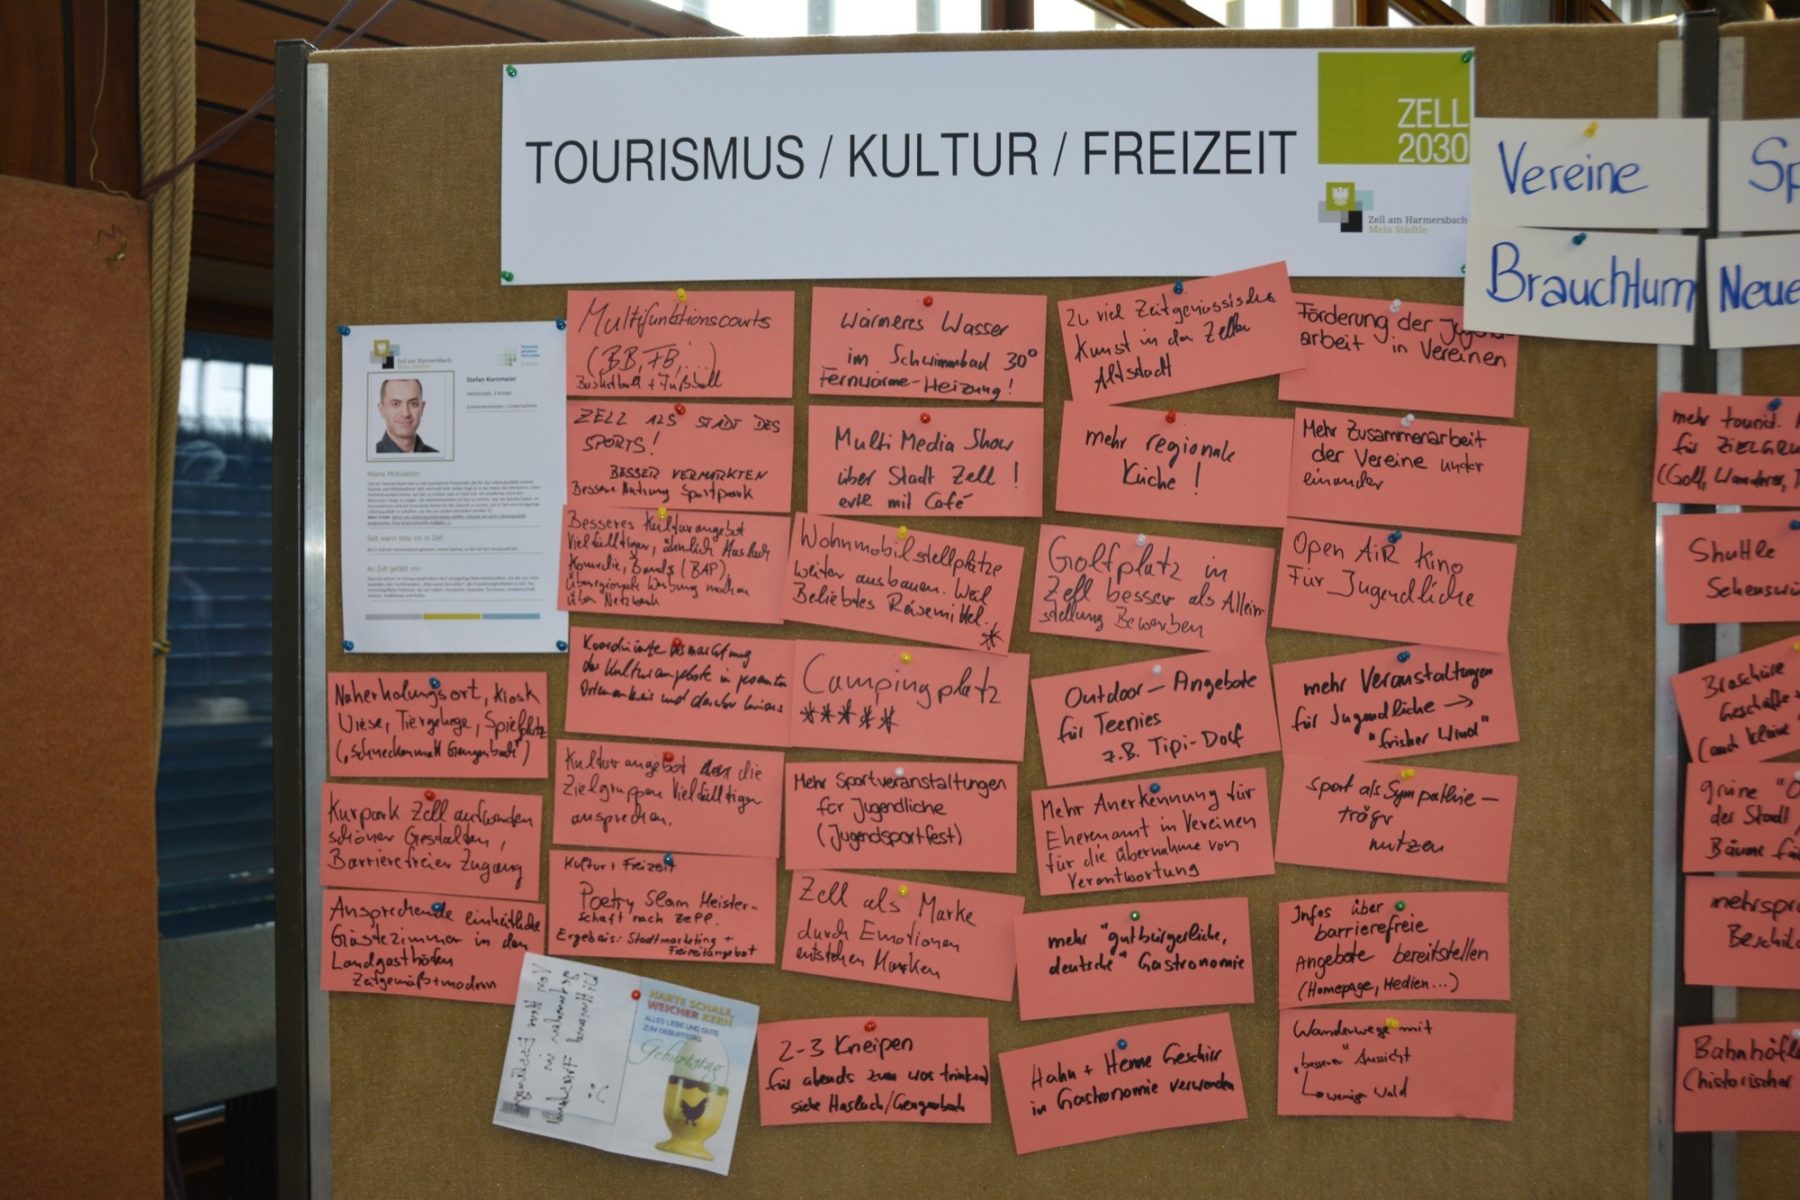 TOURISMUS / KULTUR / FREIZEIT
ZELL
2030
Zell am Harmersbach
Mein Städtle
Vereine
Brauchtum
Sp
Neue
Zell am Harmersbach
Mein Städtle
Stefan Kornmeier
Meine Motivation:
Seit wann lebe ich in Zell:
An Zell gefällt mir:
Naherholungsort, Kiosk
Wiese, Tiergehege, Spielplatz
Kurpark Zell aufwerten
schöner Gestalten,
Barrierefreier Zugang
Ansprechende einheitliche
Gästezimmer in den
Landgasthöfen
Zeitgemäß + modern
Multifunktionscourts
(BB, FB, ...)
Basketball + Fußball
ZELL ALS STADT DES
SPORTS!
BESSER VERMARKTEN
Bessere Nutzung Sportpark
Besseres Kulturangebot
Vielfälltiger, ähnlich Haslach
Komedie, Bands (BAP)
überregionale Werbung machen
über Netzwerk
Koordinierte Vermarktung
der Kulturangebote in gesamten
Ortenaukreis und darüber hinaus
Kulturangebot die
Zielgruppen Vielfälltiger
ansprechen.
Kultur + Freizeit
Poetry Slam Meister-
schaft nach Zell.
Ergebnis: Stadtmarketing +
Freizeitangebot
HARTE SCHALE,
WEICHER KERN
ALLES LIEBE UND GUTE
ZUM GEBURTSTAG
Geburtstag
Wärmeres Wasser
im Schwimmbad 30°
Fernwärme-Heizung!
Multi Media Show
über Stadt Zell !
evtl mit Café
Wohnmobilstellplätze
weiter ausbauen. Weil
Beliebtes Reisemittel.
*
Campingplatz
*****
Mehr Sportveranstaltungen
für Jugendliche
(Jugendsportfest)
Zell als Marke
durch Emotionen
entstehen Marken
2-3 Kneipen
für abends zum was trinken
siehe Haslach/Gengenbach
Zu viel Zeitgenössische
Kunst in der Zeller
Altstadt
mehr regionale
Küche !
Golfplatz in
Zell besser als Allein-
stellung Bewerben
Outdoor-Angebote
für Teenies
z.B. Tipi-Dorf
Mehr Anerkennung für
Eherenamt in Vereinen
für die übernahme von
Verantwortung
mehr "gutbürgerliche,
deutsche" Gastronomie
Hahn + Henne Geschirr
in Gastronomie verwenden
Förderung der Jugend
arbeit in Vereinen
Mehr Zusammenarbeit
der Vereine unter
einander
Open AiR Kino
Für Jugendliche
mehr Veranstaltungen
für Jugendliche →
"frisher Wind"
sport als Sympathie-
träger
nutzen
Infos über
barrierefreie
Angebote bereitstellen
(Homepage, Medien...)
Wanderwege mit
"besserer" Aussicht
weniger Wald
mehr tourist.
für ZIELGRU
(Golf, Wanderer,
Shuttle
Sehenswü
Broschüre
Geschäfte
(auch kleine
grüne "O
der Stadt
Bäume fä
mehrspra
Beschild
Bahnhöfle
(historischer